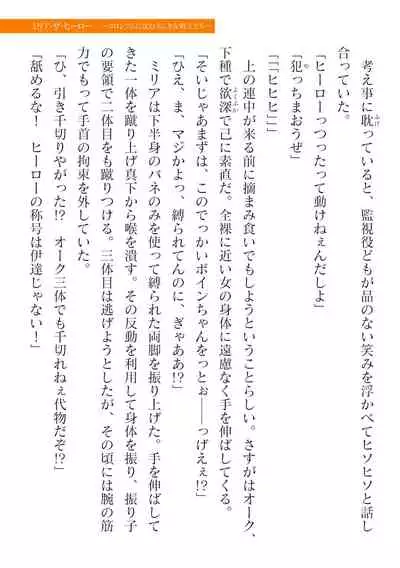 考え事に耽っていると、監視役どもが品のない笑みを浮かべてヒソヒソと話し
合っていた。
「ヒーローっつったって動けねぇんだしよ」
「犯っちまおうぜ」
「「ヒヒヒ」」
　上の連中が来る前に摘まみ食いでもしようということらしい。さすがはオーク、
下種で欲深で己に素直だ。全裸に近い女の身体に遠慮なく手を伸ばしてくる。
「そいじゃあまずは、このでっかいボインちゃんをっとぉ――っげえぇ!?」
「ひえ、ま、マジかよっ、縛られてんのに、ぎゃああ!?」
　ミリアは下半身のバネのみを使って縛られた両脚を振り上げた。手を伸ばして
きた一体を蹴り上げ真下から喉を潰す。その反動を利用して身体を振り、振り子
の要領で二体目をも蹴りつける。三体目は逃げようとしたが、その頃には腕の筋
力でもって手首の拘束を外していた。
「ひ、引き千切りやがった!?　オーク三体でも千切れねぇ代物だぞ!?」
「舐めるな！　ヒーローの称号は伊達じゃない！」